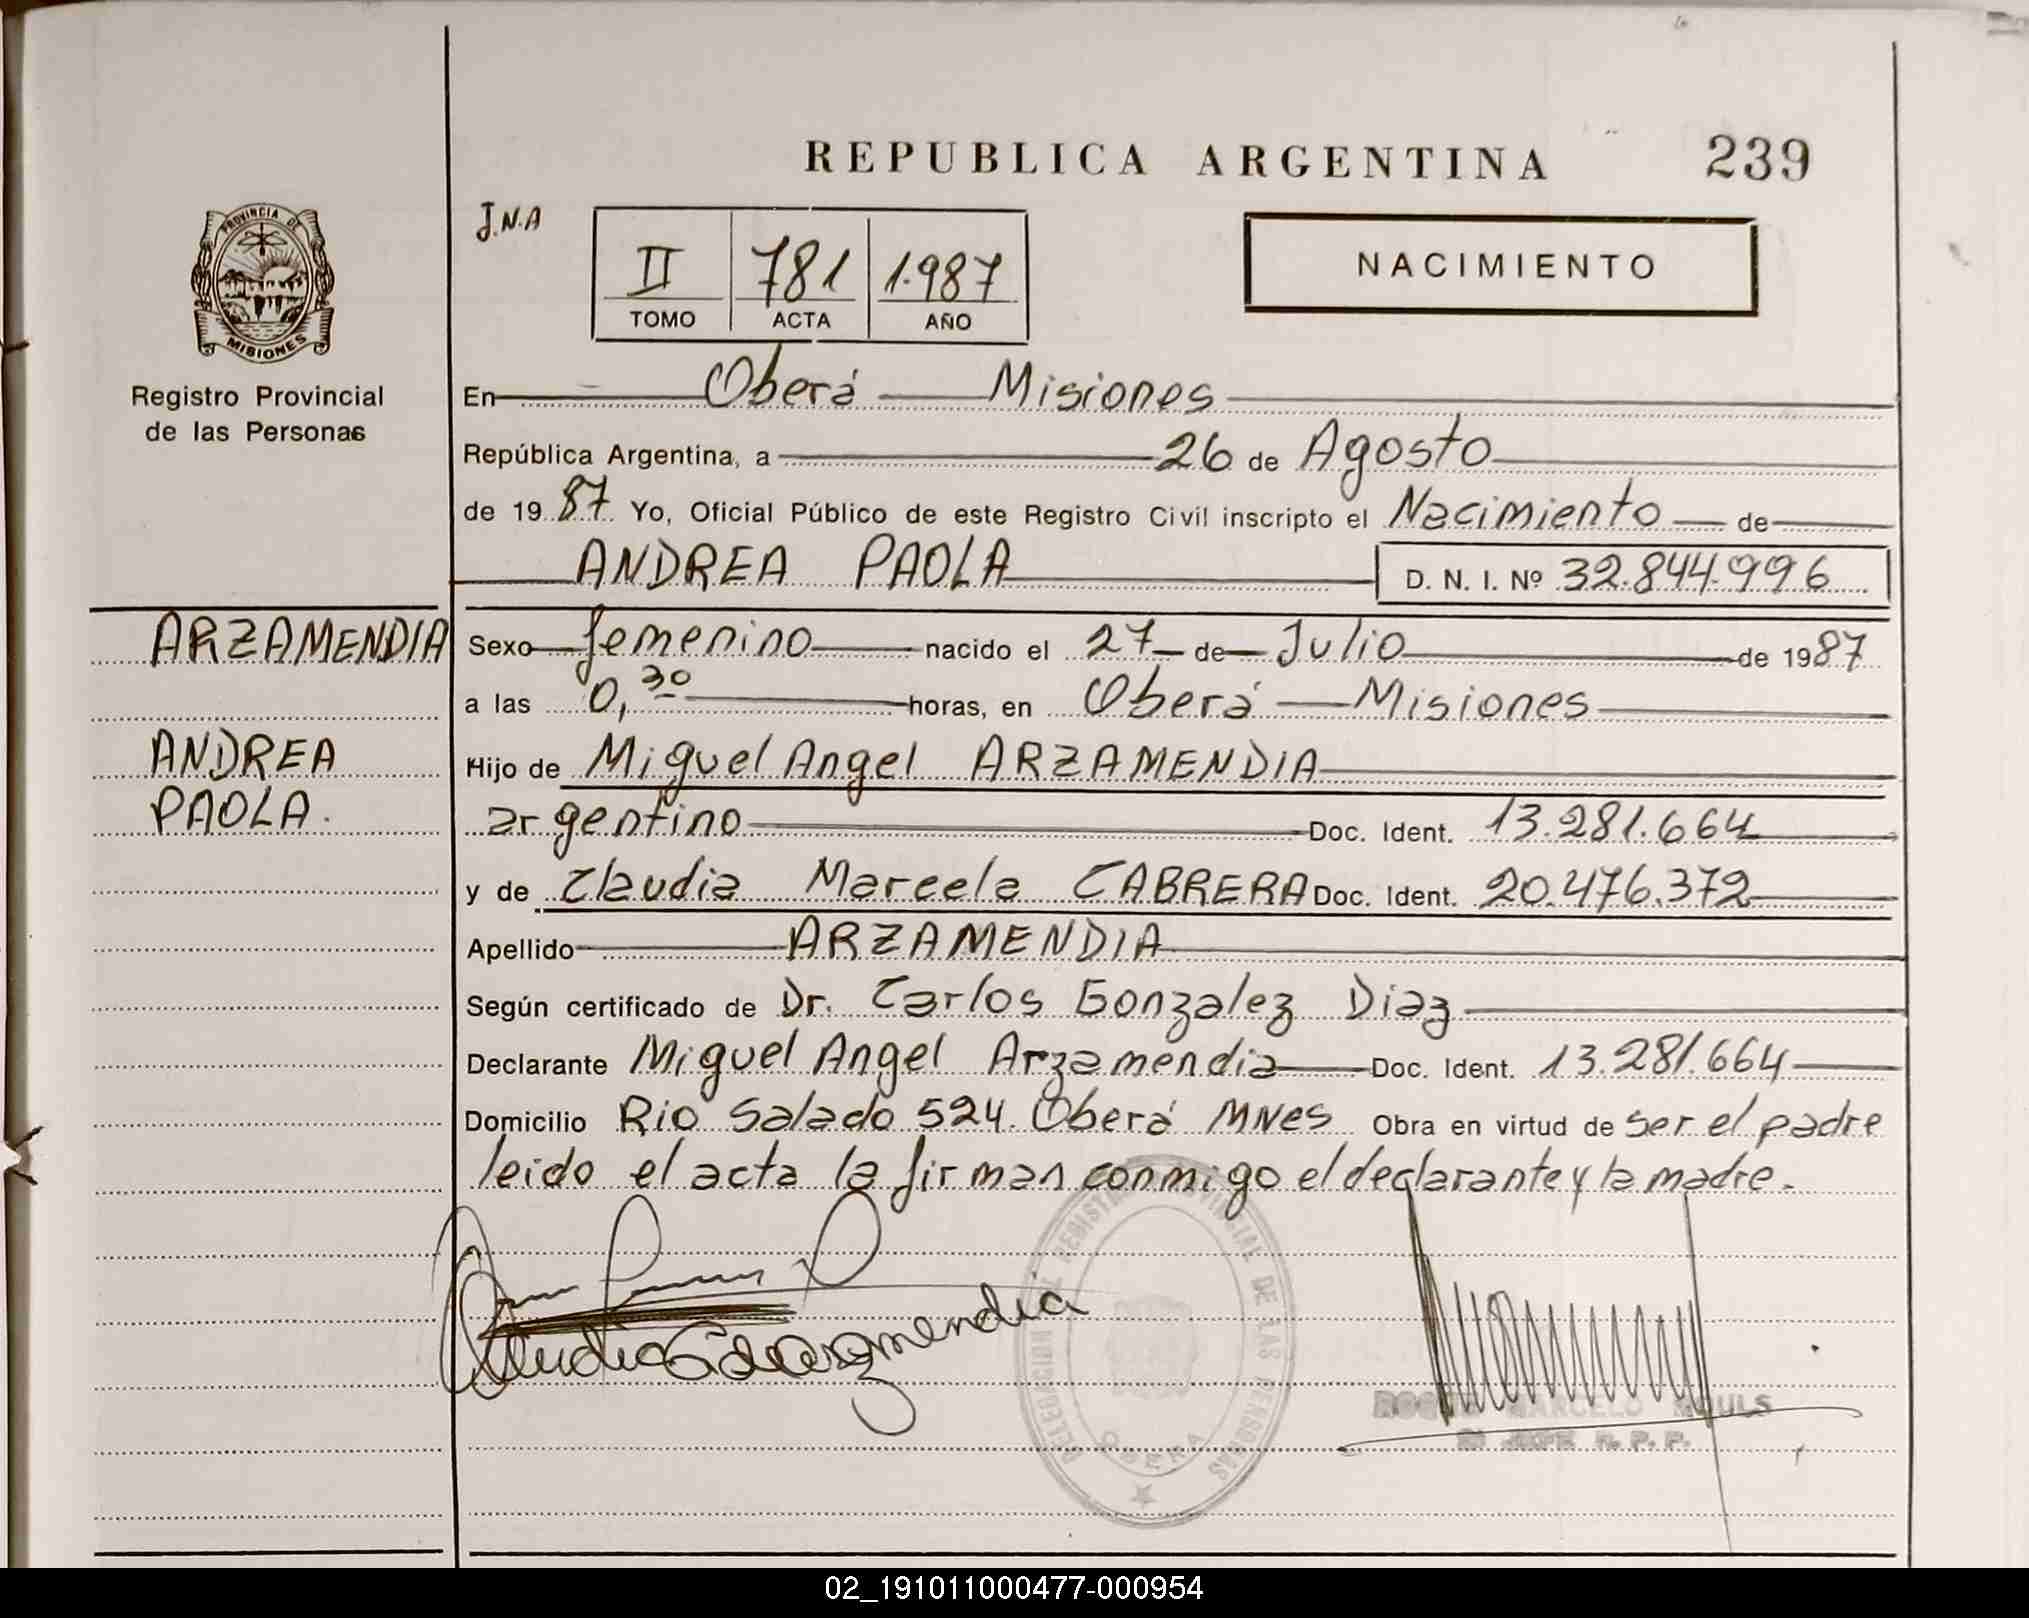 REPUBLICA ARGENTINA 239
PROVINCIA DE
MISIONES
J.N.A
II 781 1.987
TOMO ACTA AÑO
NACIMIENTO
Registro Provincial
de las Personas
En Oberá Misiones
República Argentina, a 26 de Agosto
de 19 87 Yo, Oficial Público de este Registro Civil inscripto el Nacimiento de
ANDREA PAOLA D. N. I. Nº 32.844.996
ARZAMENDIA
ANDREA
PAOLA.
Sexo femenino nacido el 27 de Julio de 1987
a las 0,30 horas, en Oberá Misiones
Hijo de Miguel Angel ARZAMENDIA
argentino Doc. Ident. 13.281.664
y de Claudia Marcela CABRERA Doc. Ident. 20.476.372
Apellido ARZAMENDIA
Según certificado de Dr. Carlos Gonzalez Diaz
Declarante Miguel Angel Arzamendia Doc. Ident. 13.281.664
Domicilio Rio Salado 524. Oberá MNES Obra en virtud de ser el padre
leido el acta la firman conmigo el declarante y la madre.
DELEGACION REGISTRO PROVINCIAL DE LAS PERSONAS
OBERA
MARCELO
R. P. P.
02_191011000477-000954